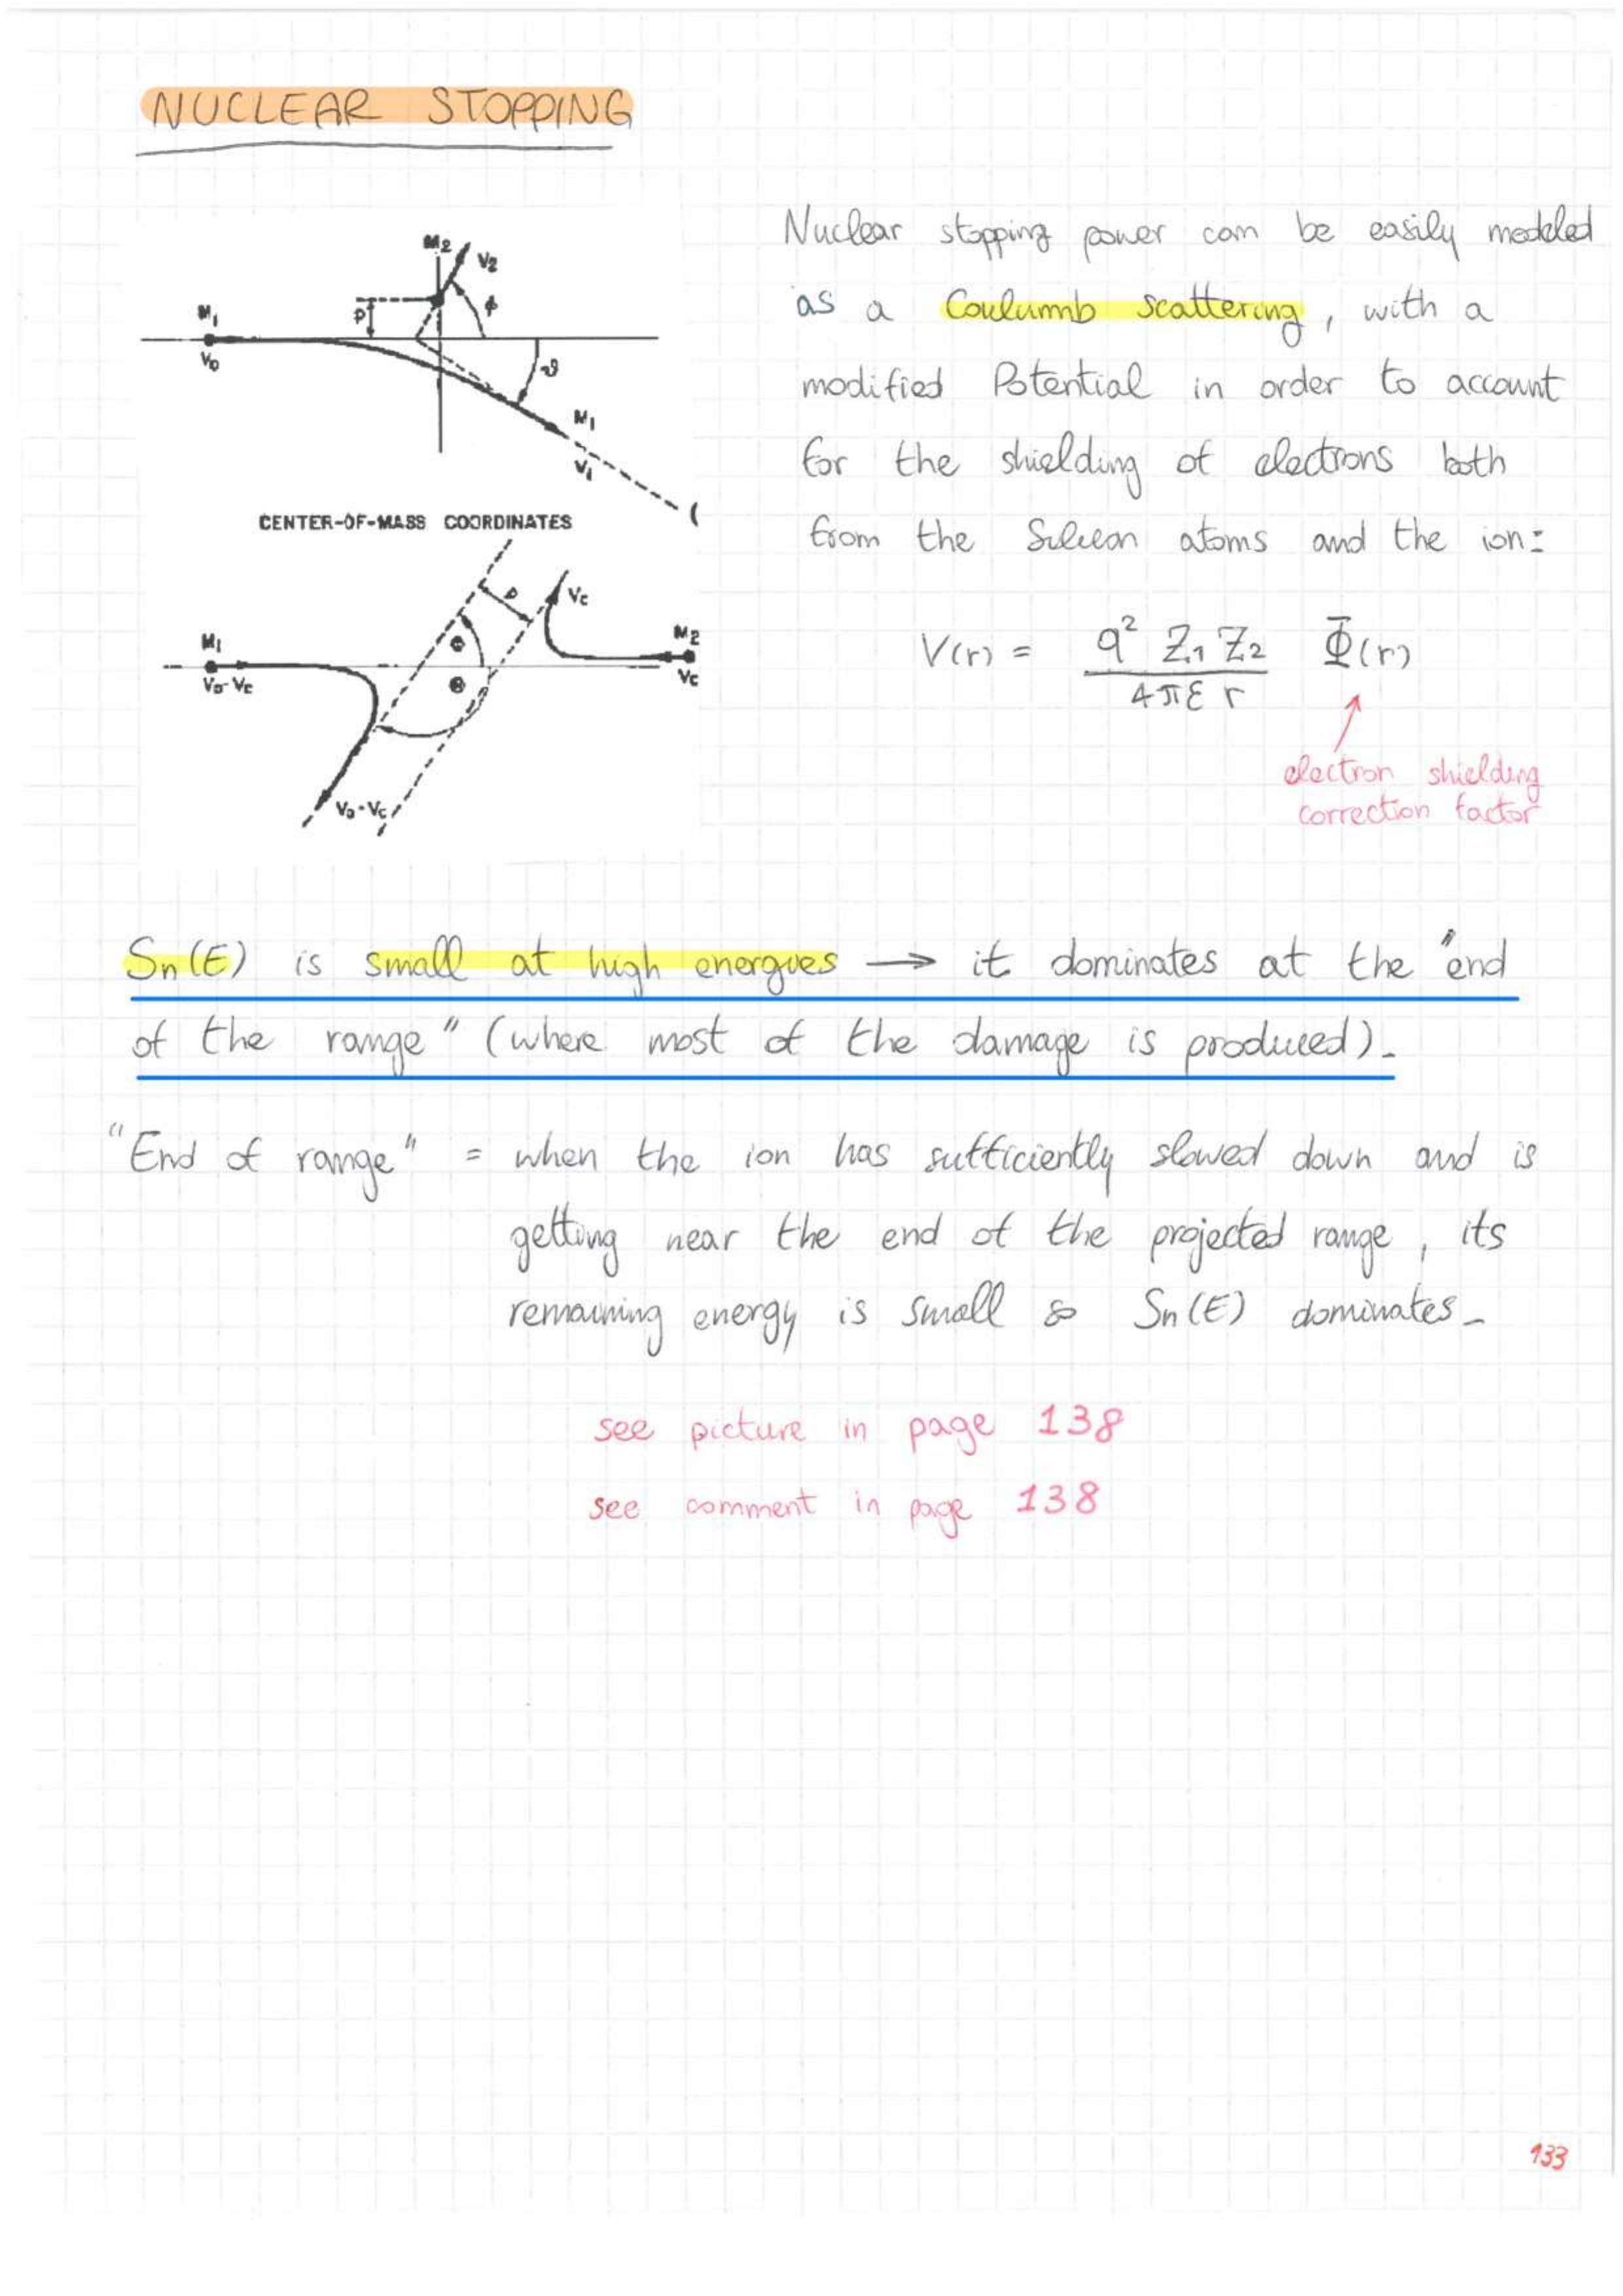 NUCLEAR STOPPING
M2
V2
P
ϕ
M1
V0
ϑ
M1
V1
(
CENTER-OF-MASS COORDINATES
P
Vc
M1
M2
Θ
V0-Vc
Vc
Θ
V0-Vc
Nuclear stopping power can be easily modeled
as a Coulumb scattering, with a
modified Potential in order to account
for the shielding of electrons both
from the Silicon atoms and the ion:
V(r) = q² Z1 Z2 / 4πε r Φ(r)
electron shielding
correction factor
Sn(E) is small at high energies → it dominates at the "end
of the range" (where most of the damage is produced).
"End of range" = when the ion has sufficiently slowed down and is
getting near the end of the projected range, its
remaining energy is small so Sn(E) dominates.
see picture in page 138
see comment in page 138
133